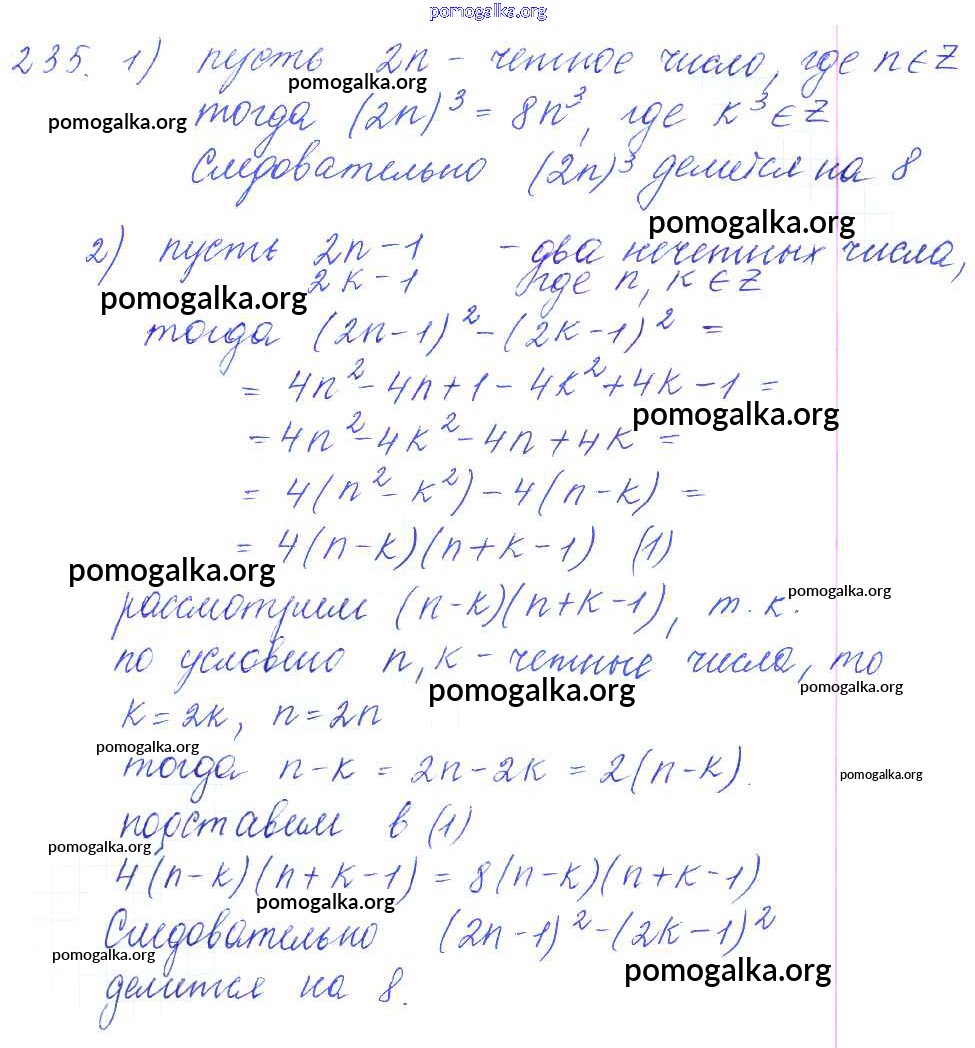 pomogalka.org
235. 1) пусть 2n – четное число, где n ∈ Z
pomogalka.org
тогда (2n)³ = 8n³, где k³ ∈ Z
pomogalka.org
Следовательно (2n)³ делится на 8
pomogalka.org
2) пусть 2n – 1 – два нечетных числа,
2k – 1 где n, k ∈ Z
pomogalka.org
тогда (2n – 1)² – (2k – 1)² =
= 4n² – 4n + 1 – 4k² + 4k – 1 =
pomogalka.org
= 4n² – 4k² – 4n + 4k =
= 4(n² – k²) – 4(n – k) =
= 4(n – k)(n + k – 1) (1)
pomogalka.org
pomogalka.org
рассмотрим (n – k)(n + k – 1), т. к.
по условию n, k – четные числа, то
pomogalka.org
pomogalka.org
k = 2k, n = 2n
pomogalka.org
тогда n – k = 2n – 2k = 2(n – k).
pomogalka.org
подставим в (1)
pomogalka.org
4(n – k)(n + k – 1) = 8(n – k)(n + k – 1)
pomogalka.org
Следовательно (2n – 1)² – (2k – 1)²
pomogalka.org
pomogalka.org
делится на 8.